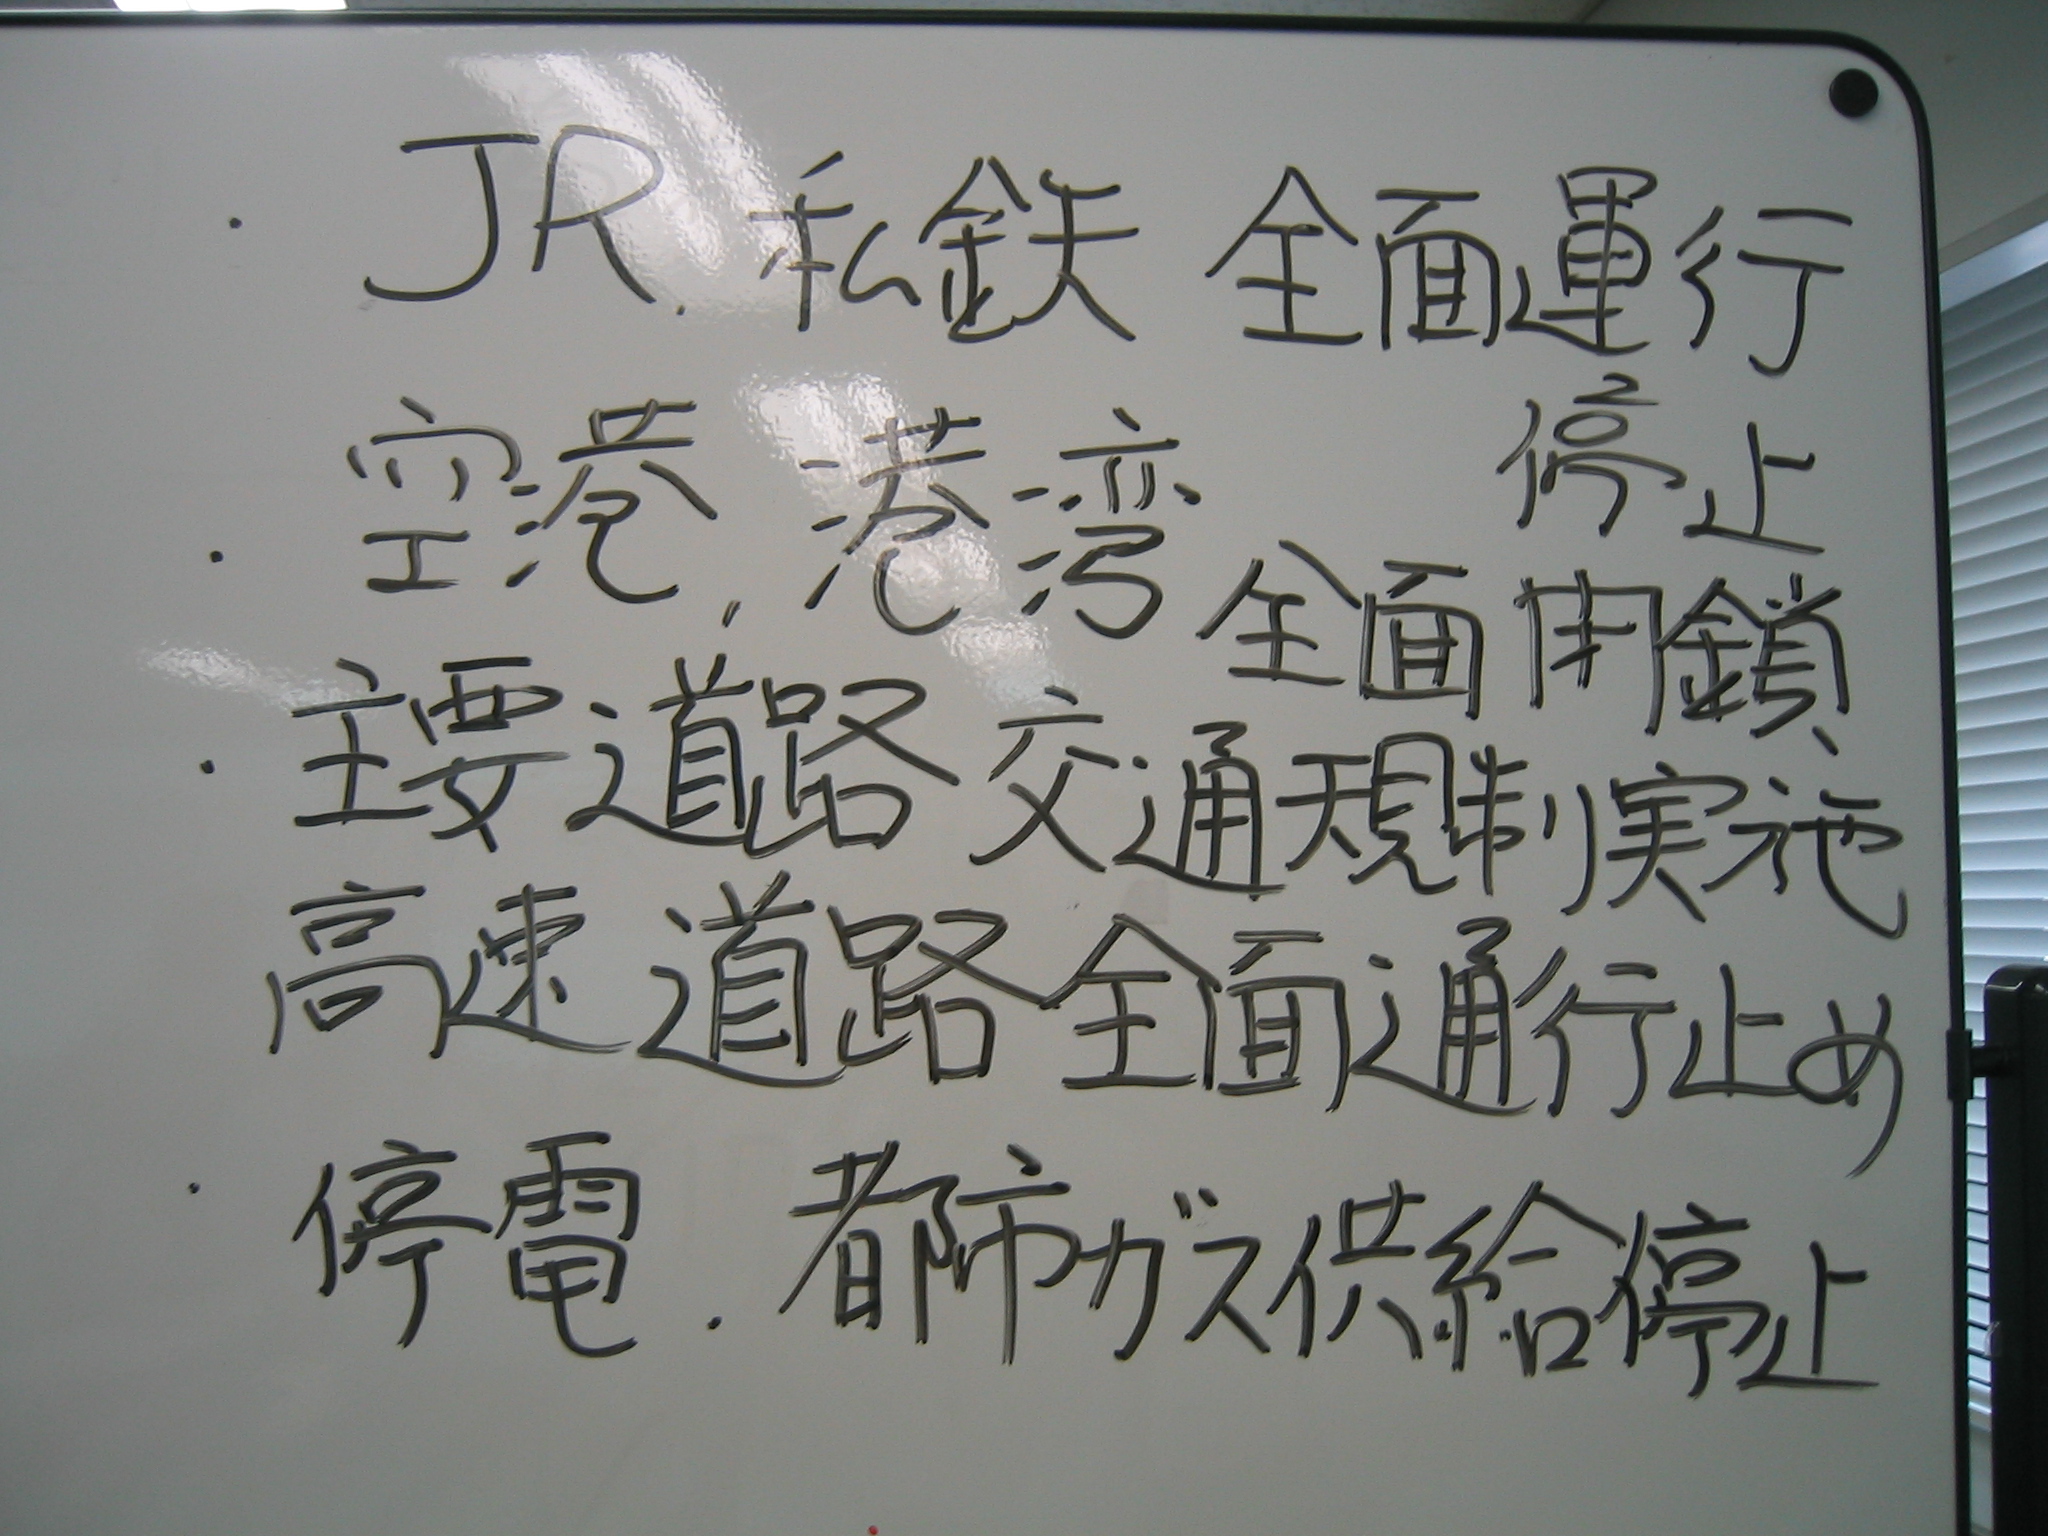 ・JR. 私鉄 全面運行
停止
・空港, 港湾 全面閉鎖
・主要道路 交通規制実施
高速道路全面通行止め
・停電. 都市ガス供給停止